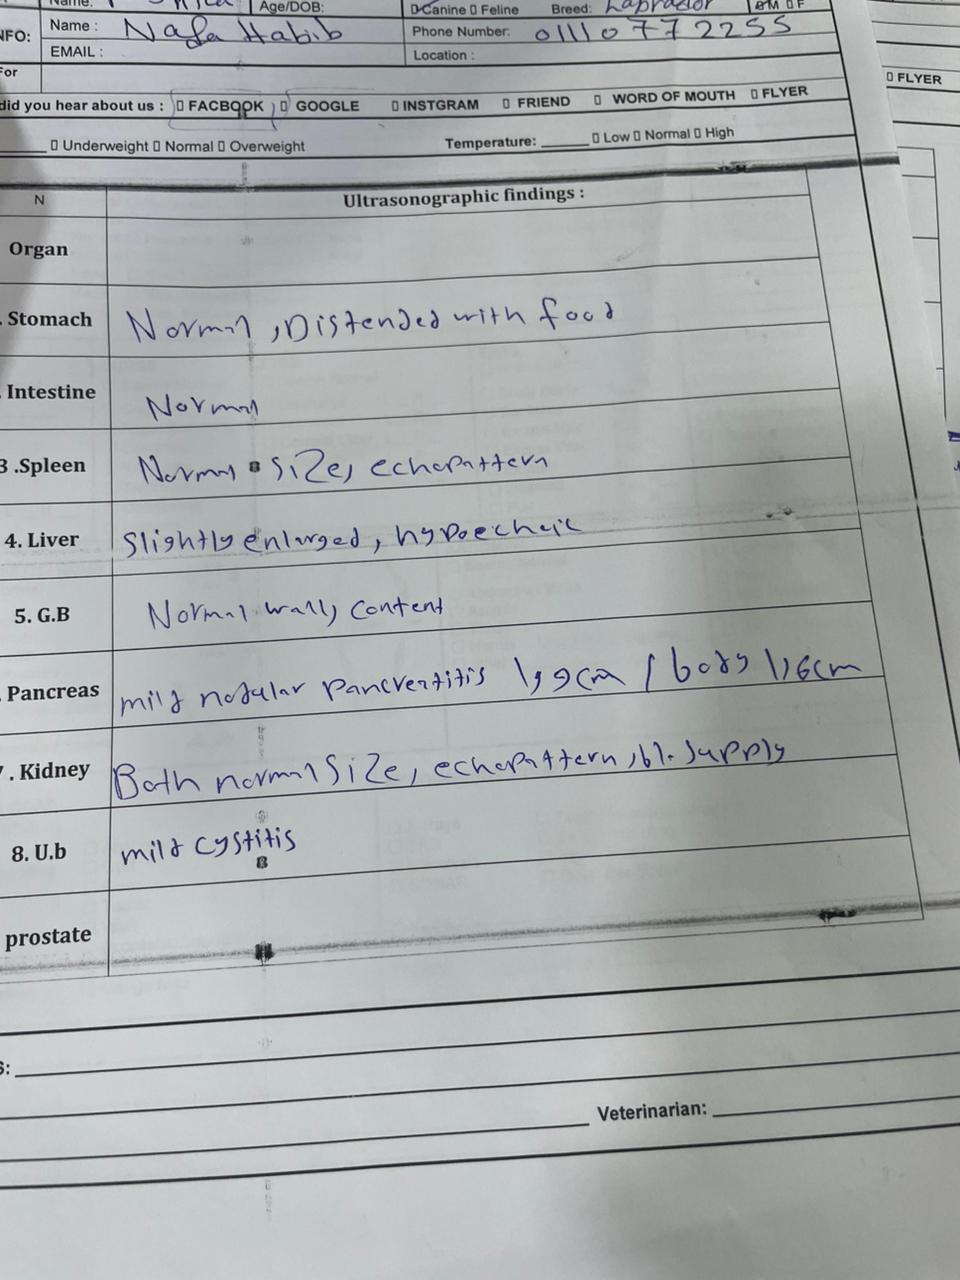 Name: Age/DOB: Canine Feline Breed: Labrador M F
NFO: Name : Nafa Habib Phone Number: 01110772255
EMAIL : Location :
For
did you hear about us : FACBOOK GOOGLE INSTGRAM FRIEND WORD OF MOUTH FLYER
FLYER
Underweight Normal Overweight Temperature: Low Normal High
N Ultrasonographic findings :
Organ
Stomach Normal, Distended with food
Intestine Normal
3 .Spleen Normal size, echopattern
4. Liver Slightly enlarged, hypoechoic
5. G.B Normal wall, content
Pancreas mild nodular Pancreatitis 1,9cm / body 1,6cm
. Kidney Both normal size, echopattern, bl. supply
8. U.b mild cystitis
prostate
S:
Veterinarian: